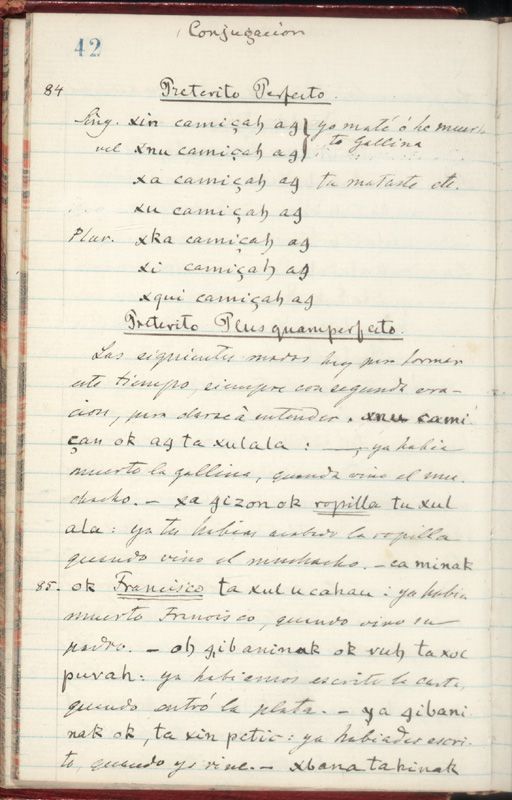 Conjugacion
42
84 Preterito Perfecto.
Sing. xin camiçah aq } yo maté ó he muer-
vel xnu camiçah aq } to Gallina
xa camiçah aq tu mataste etc.
xu camiçah aq
Plur. xka camiçah aq
xi camiçah aq
xqui camiçah aq
Preterito Plusquamperfecto.
Los siguientes modos hay para formar
este tiempo, siempre con segunda ora-
cion, para darse à entender. xnu cami
çan ok aq ta xulala : — ya habia
muerto la gallina, quando vino el mu-
chacho. — xa qizon ok ropilla tu xul
ala : ya tu habias acabado la ropilla
quando vino el muchacho. — ca minak
85. ok Francisco ta xul u cahau : ya habia
muerto Francisco, quando vino su
padre. — oh qibaninak ok vuh ta xoc
puvah : ya habiamos escrito la carta,
quando entró la plata. — ya qibani
nak ok, ta xin petic : ya habiades escri-
to, quando yo vine. — xbana tahinak